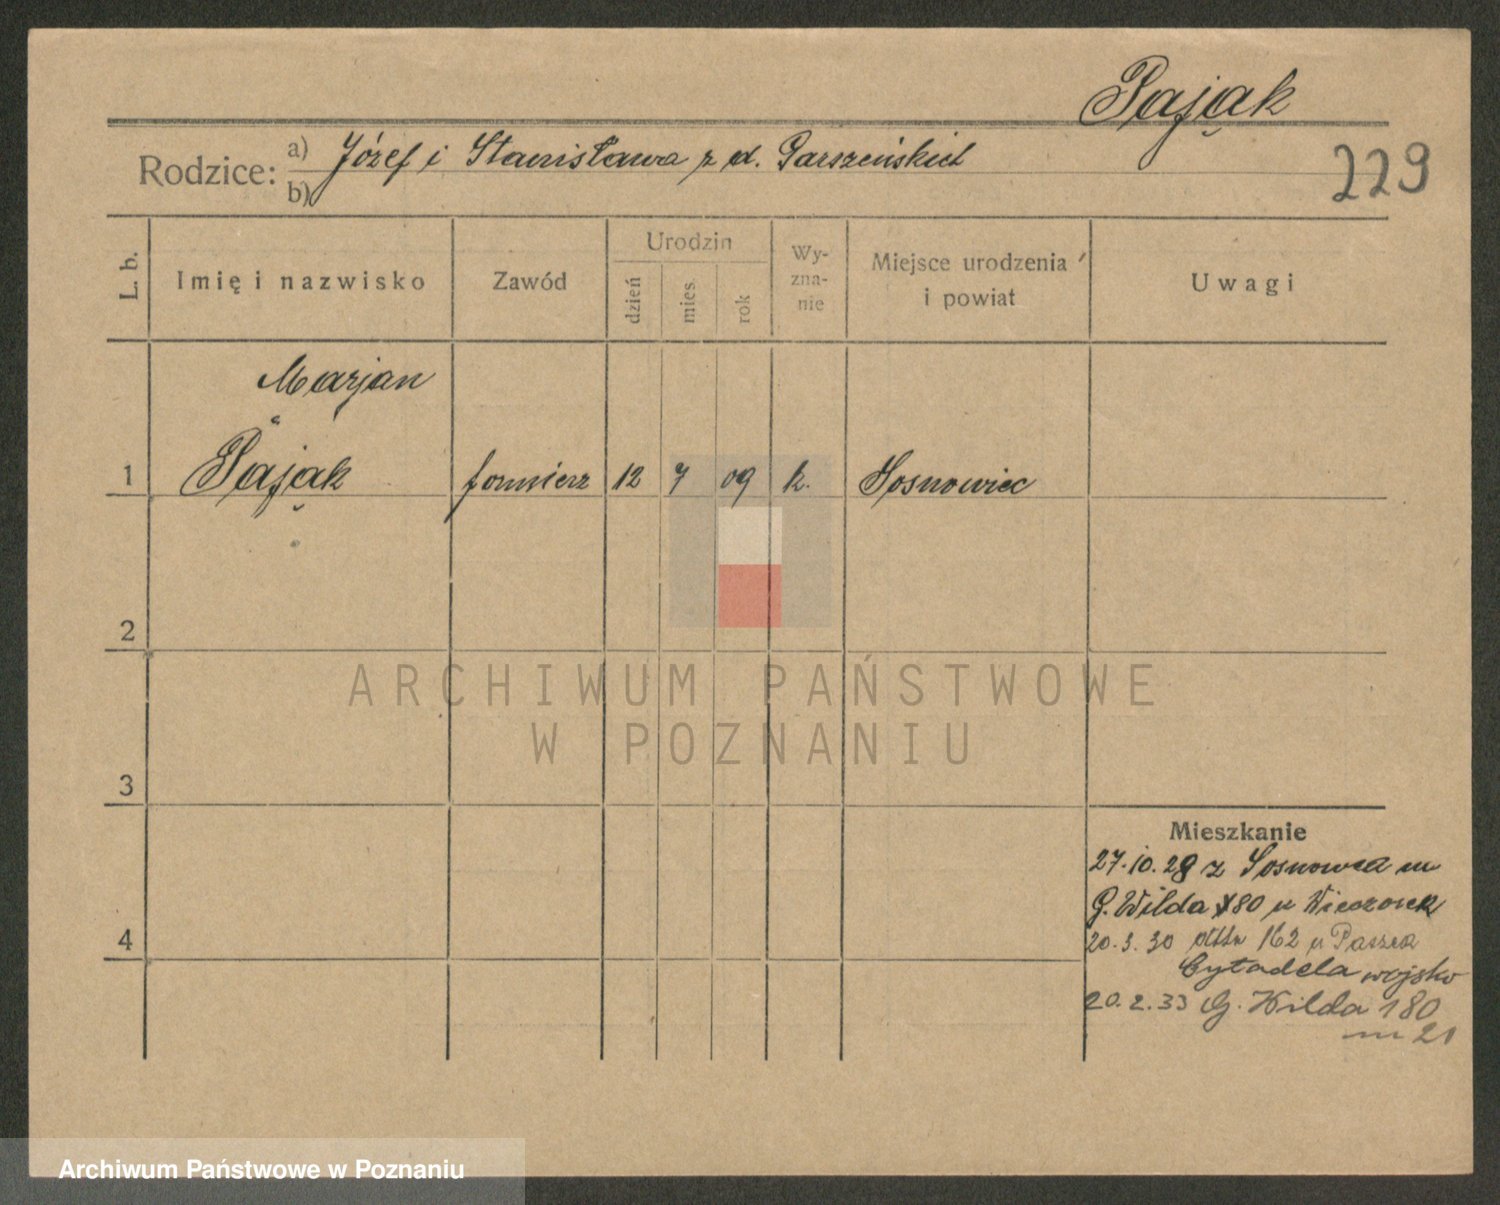 Pająk
Rodzice: a) Józef i Stanisława z d. Parszeńskich
b)
229
L. b.
Imię i nazwisko
Zawód
Urodzin
dzień
mies.
rok
Wy-
zna-
nie
Miejsce urodzenia
i powiat
Uwagi
Marjan
1 Pająk formierz 12 7 09 k. Sosnowiec
2
3
4
Mieszkanie
27.10.28 z Sosnowca m
G. Wilda 180 u Wieczorek
20.3.30 162 u
Cytadela wojsko
20.2.33 G. Wilda 180
m 21
ARCHIWUM PAŃSTWOWE
W POZNANIU
Archiwum Państwowe w Poznaniu